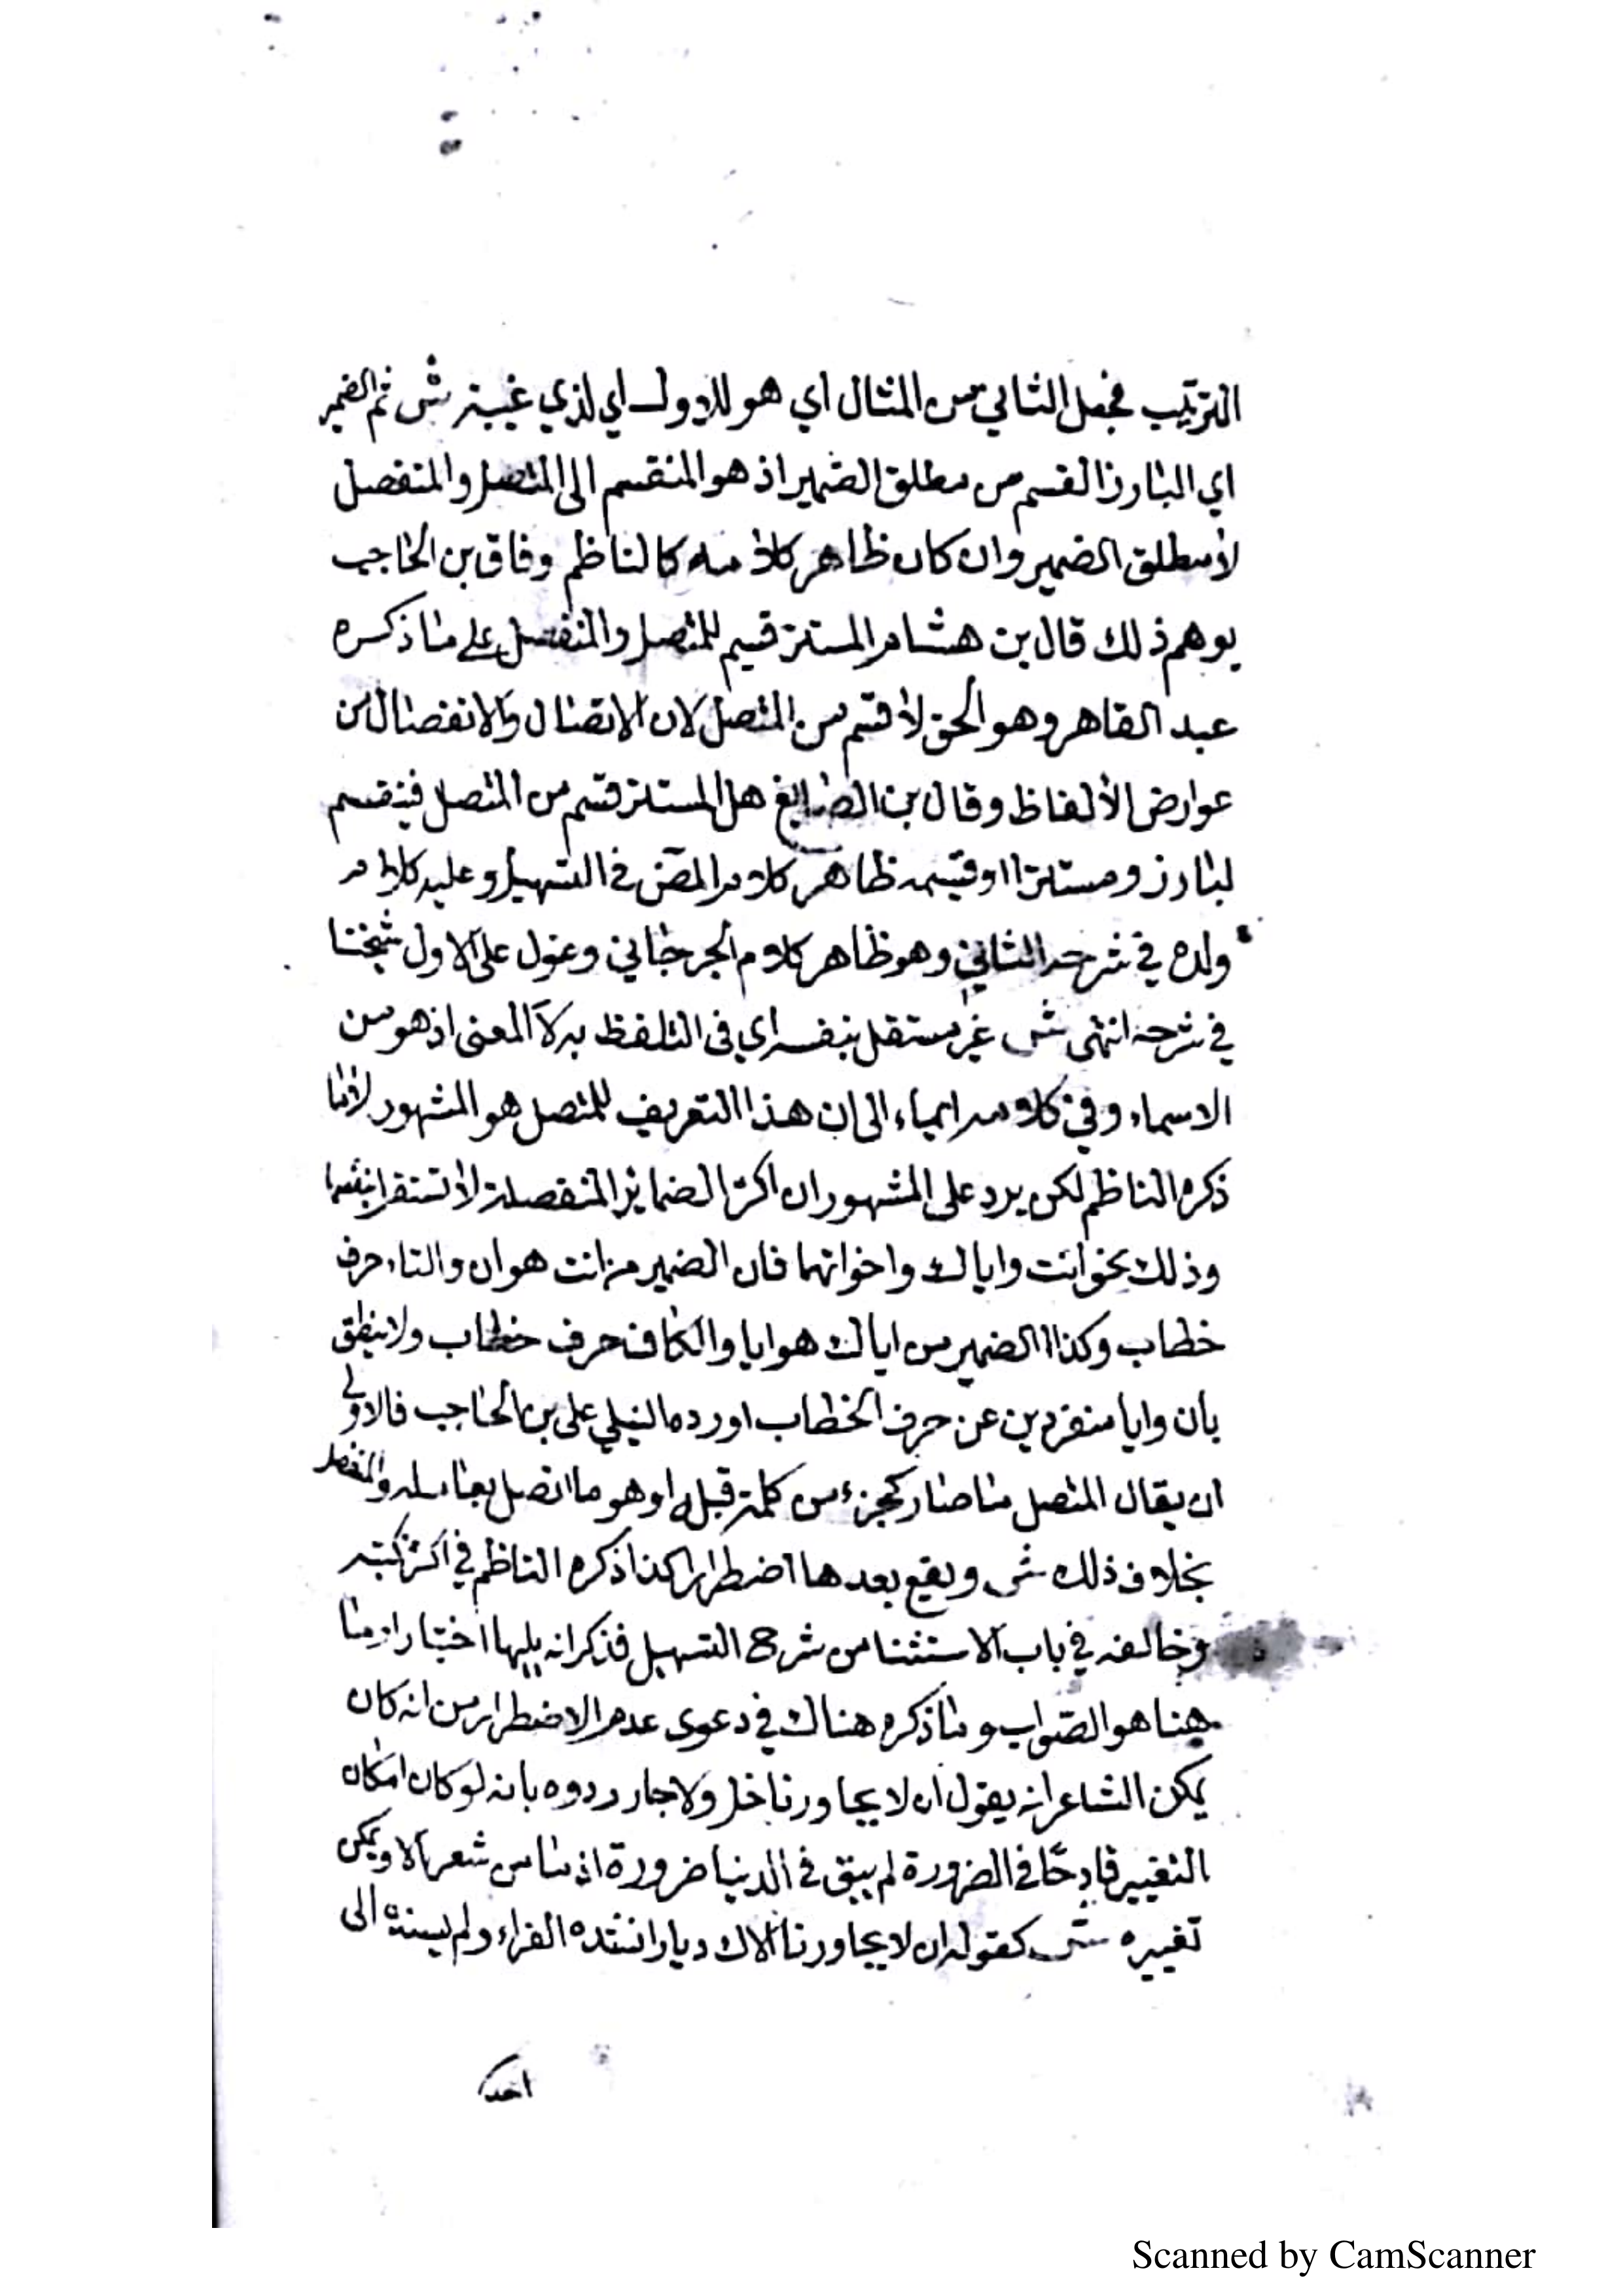 الترتيب فجعل الثاني من المثال اي هو للاول اي لذي غيبة ش ثم الضمير
اي البارز القسم من مطلق الضمير اذ هو المنقسم الى المتصل والمنفصل
لا مطلق الضمير وان كان ظاهر كلامه كالناظم وفاق بن الحاجب
يوهم ذلك قال بن هشام المستتر قسيم للمتصل والمنفصل على ما ذكره
عبد القاهر وهو الحق لا قسم من المتصل لان الاتصال والانفصال من
عوارض الألفاظ وقال بن الصايغ هل المستتر قسم من المتصل فينقسم
لبارز ومستتر او قسيمه ظاهر كلام المص في التسهيل وعليه كلام
ولده في شرحه الثاني وهو ظاهر كلام الجرجاني وعول على الاول شيخنا
في شرحه انتهى ش غير مستقل بنفسه اي في التلفظ به لا المعنى اذ هو من
الاسماء وفي كلامه ايماء الى ان هذا التعريف للمتصل هو المشهور لا ما
ذكره الناظم لكن يرد على المشهور ان اكثر الضمائر المنفصلة لا تستقر
وذلك نحو انت واياك واخواتهما فان الضمير من انت هو ان والتاء حرف
خطاب وكذا الضمير من اياك هو ايا والكاف حرف خطاب ولا ينطق
بان وايا منفردين عن حرف الخطاب اورده النيلي على بن الحاجب فالاولى
ان يقال المتصل ما صار كجزء من كلمة قبله او هو ما اتصل بعامله والمنفصل
بخلاف ذلك ش ويقع بعدها اضطرارا كذا ذكره الناظم في اكثر كتبه
وخالفه في باب الاستثنا من شرح التسهيل فذكر انه يليها اختيارا وما
هنا هو الصواب وما ذكره هناك في دعوى عدم الاضطرار من انه كان
يمكن الشاعر انه يقول ان لا يجاورنا خل ولا جار ردوه بانه لو كان امكان
التغيير قادحا في الضرورة لم يبق في الدنيا ضرورة اذ ما من شعر الا ويمكن
تغييره ش كقوله ان لا يجاورنا الاك ديار انشده الفراء ولم يسنده الى
احد
Scanned by CamScanner